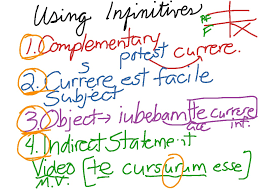 Using Infinitives
PF
F
1. Complementary
potest currere.
s
2. Currere est facile
Subject
3. Object → iubebam [te currere
acc inf.
4. Indirect Statement
Video [te cursurum esse]
M.V.